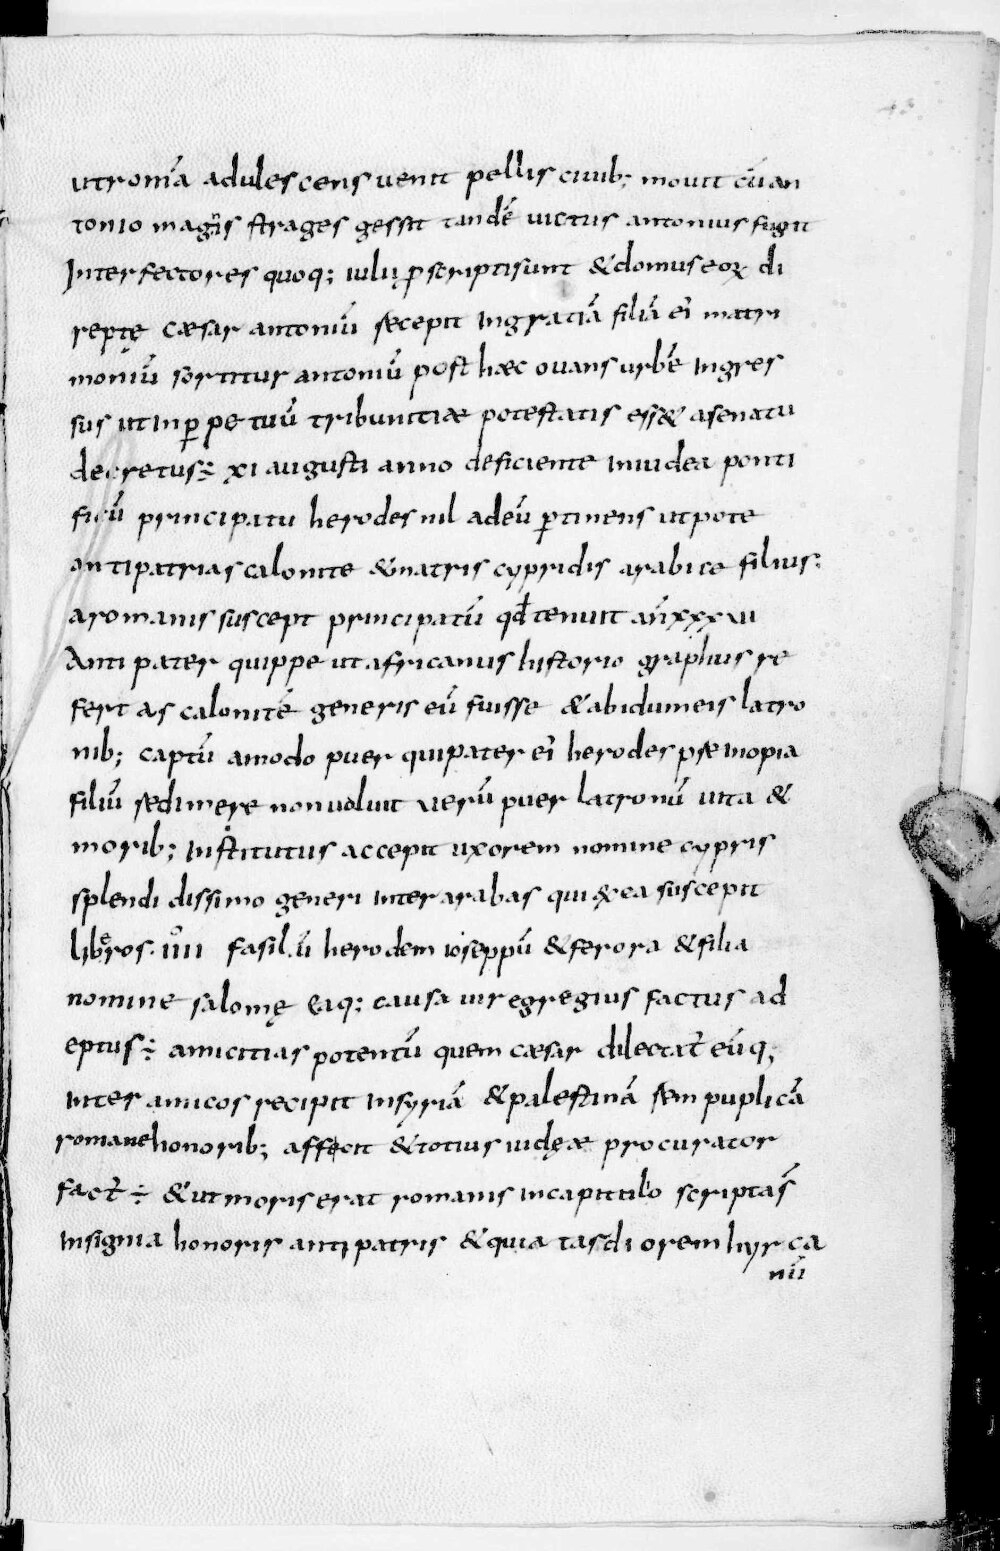 ut romā adulescens uenit pellis ciuib; mouit cū an
tonio magīs strages gessit tandē uictus antonius fugit
Interfectores quoq; iulii ꝑscripti sunt & domus eoꝝ di
reptę cæsar antoniū secepit in gratiā filiā ei matri
moniū sortitur antoniū post hæc ouans urbē ingres
sus ut in ꝑpetuū tribunitiæ potestatis ess& a senatu
decretus ÷ xi augusti anno deficiente in iudea ponti
ficū principatu herodes nil ad eū ꝑtinens utpote
antipatri ascalonite & matris cypridis arabice filius:
a romanis suscept principatū qđ tenuit añ xxxvii
Antipater quippe ut africanus historiographus re
fert ascalonitē generis eū fuisse & ab idumeis latro
nib; captū a modo puer qui pater ei herodes p̱sæ inopia
filiū sedimere non uoluit uerū puer latronū uita &
morib; institutus accepit uxorem nomine cypris
splendidissimo generi inter arabas qui ex ea suscepit
liberos. iiii fasil.ū herodem ioseppū & ferora & filia
nomine salomę eaq; causa uir egregius factus ad
eptus ÷ amicitias potentū quem cæsar dilectat̄ eūq;
inter amicos recipit in syriā & palestinā sem puplicā
romane honorib; affecit & totius iudęæ procurator
fact̄ ÷ & ut moris erat romanis in capitulo scriptas̄
insignia honoris antipatris & quia tasdiorem hyrca
nū